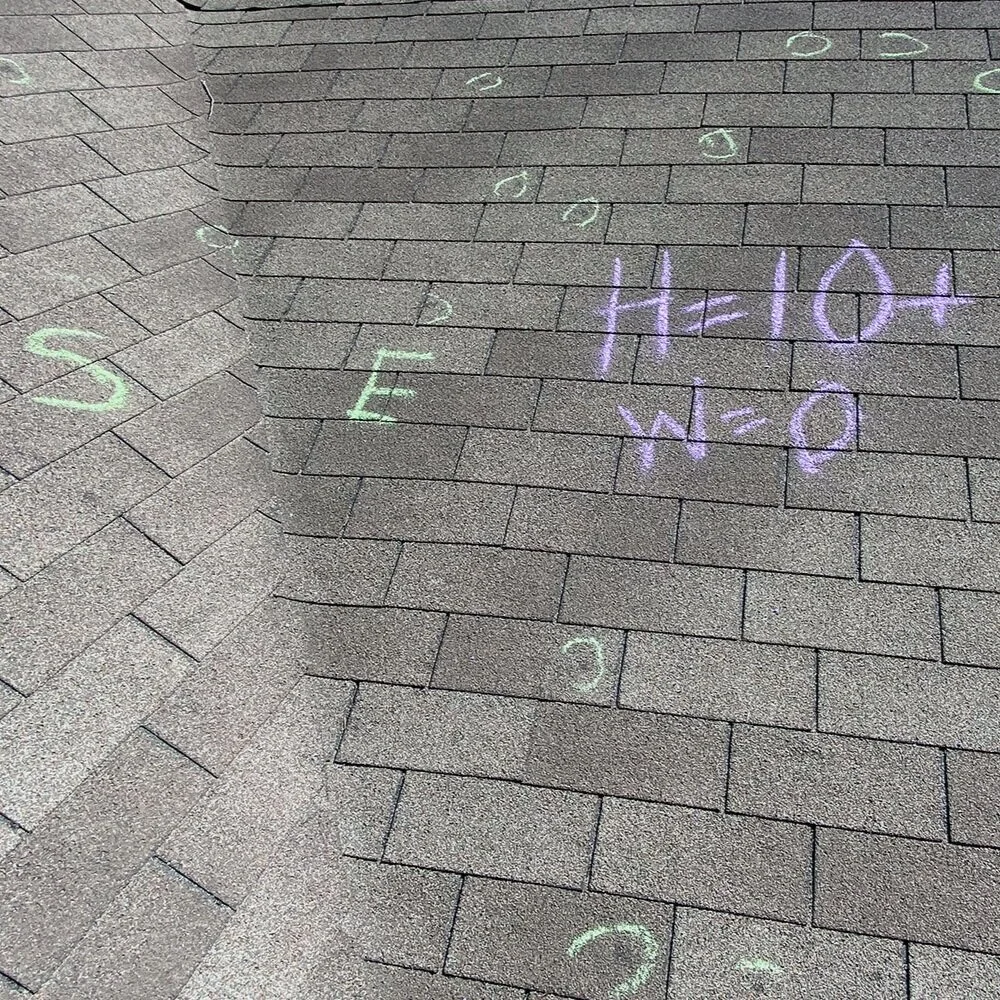 H=10+
S E
W=0